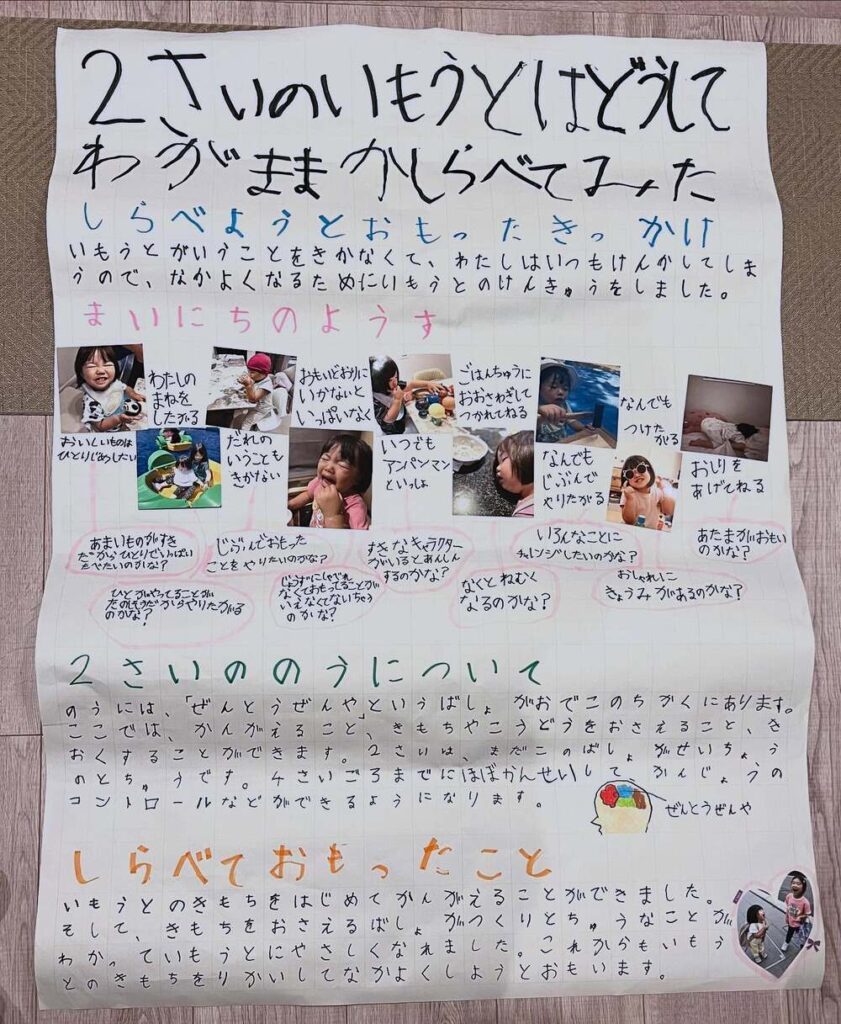 2さいのいもうとはどうして
わがままかしらべてみた
しらべようとおもったきっかけ
いもうとがいうことをきかなくて、わたしはいつもけんかしてしま
うので、なかよくなるためにいもうとのけんきゅうをしました。
まいにちのようす
わたしの
まねを
したがる
おもいどおりに
いかないと
いっぱいなく
ごはんちゅうに
おおさわぎして
つかれてねる
なんでも
つけたがる
おいしいものは
ひとりじめしたい
だれの
いうことも
きかない
いつでも
アンパンマン
といっしょ
なんでも
じぶんで
やりたがる
おしりを
あげてねる
あまいものがすき
だからひとりでいっぱい
たべたいのかな?
じぶんでおもった
ことをやりたいのかな?
すきなキャラクター
がいるとあんしん
するのかな?
いろんなことに
チャレンジしたいのかな?
あたまがおもい
のかな?
ひとがやってることが
たのしそうだからやりたがる
のかな?
じょうずにしゃべれ
なくておもってることが
いえなくてないちゃう
のかな?
なくとねむく
なるのかな?
おしゃれに
きょうみがあるのかな?
2さいののうについて
のうには、「ぜんとうぜんや」というばしょがおでこのちかくにあります。
ここでは、かんがえること、きもちやこうどうをおさえること、き
おくすることができます。2さいは、まだこのばしょがせいちょう
のとちゅうです。4さいごろまでにほぼかんせいして、かんじょうの
コントロールなどができるようになります。
ぜんとうぜんや
しらべておもったこと
いもうとのきもちをはじめてかんがえることができました。
そして、きもちをおさえるばしょがつくりとちゅうなことが
わかっていもうとにやさしくなれました。これからもいもう
とのきもちをりかいしてなかよくしようとおもいます。